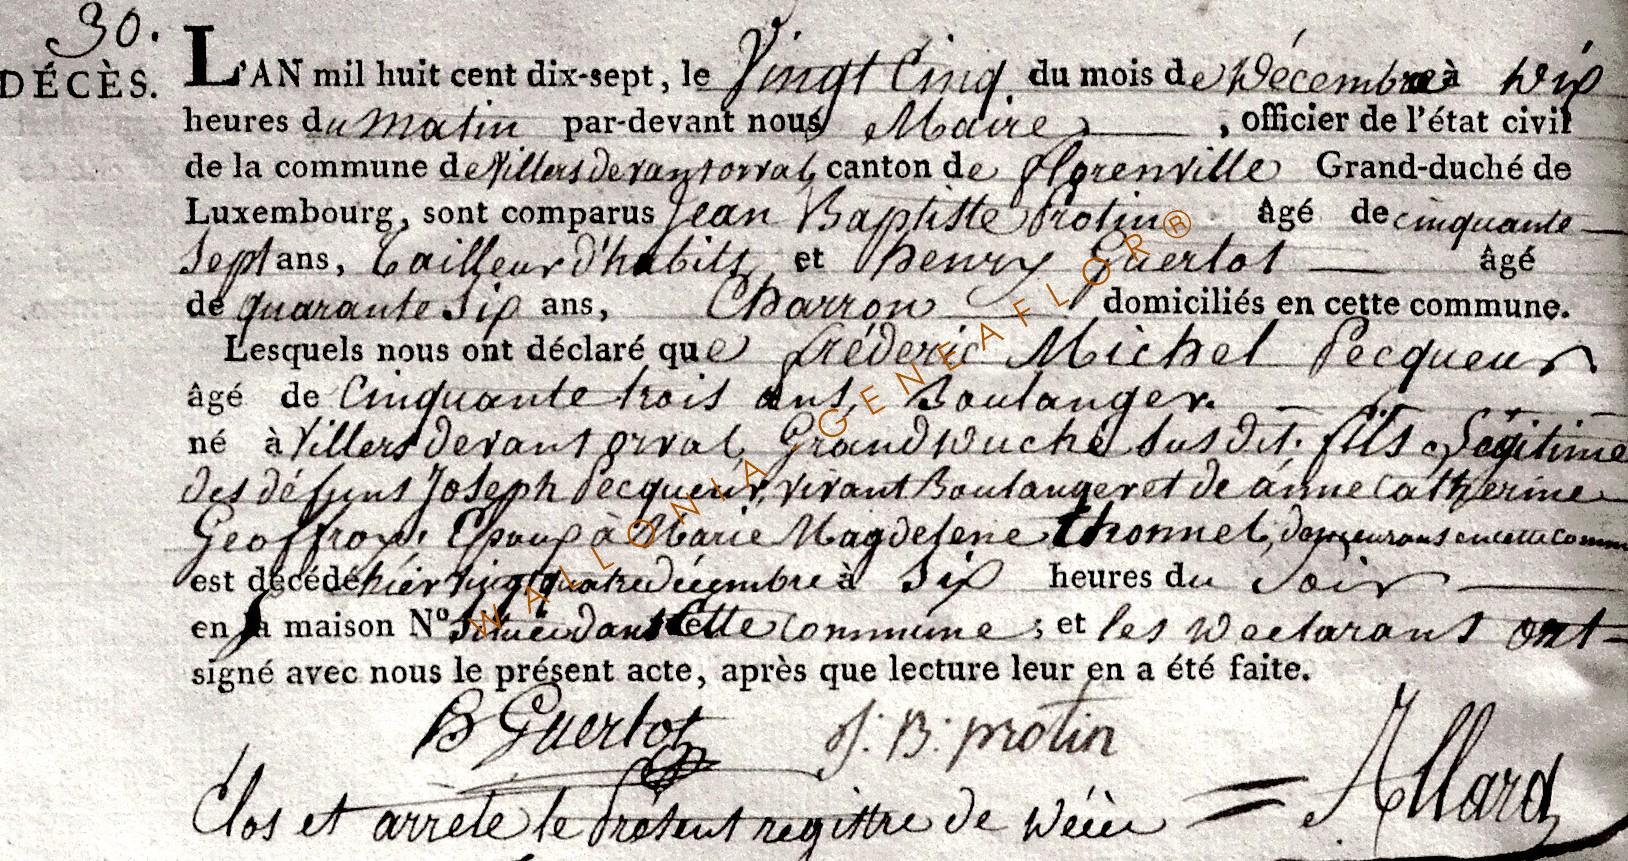 30.
DÉCÈS.
L'AN mil huit cent dix-sept, le Vingt Cinq du mois de Décembre à Dix
heures du Matin par-devant nous Maire, officier de l'état civil
de la commune de Villers devant orval, canton de florenville Grand-duché de
Luxembourg, sont comparus Jean Baptiste Protin âgé de cinquante
Sept ans, tailleur d'habits, et henry Guertot âgé
de quarante Six ans, Charron domiciliés en cette commune.
Lesquels nous ont déclaré que fréderic Michel Pecqueur
âgé de Cinquante trois ans, Boulanger.
né à Villers devant orval, Grand Duché Susdit. fils Légitime
des défuns Joseph Pecqueur, vivant Boulanger et de anne Catherine
Geoffroy. Epoux à Marie Magdelene thonnel, demeurans en cette comm
est décédé hier vingt quatre décembre à Six heures du Soir
en sa maison N° Située dans Cette Commune; et les Déclarans ont
signé avec nous le présent acte, après que lecture leur en a été faite.
Guertot J: B: protin Allard
Clos et arrêté le Présent regittre de
WALLONIA GENEAFLOR®